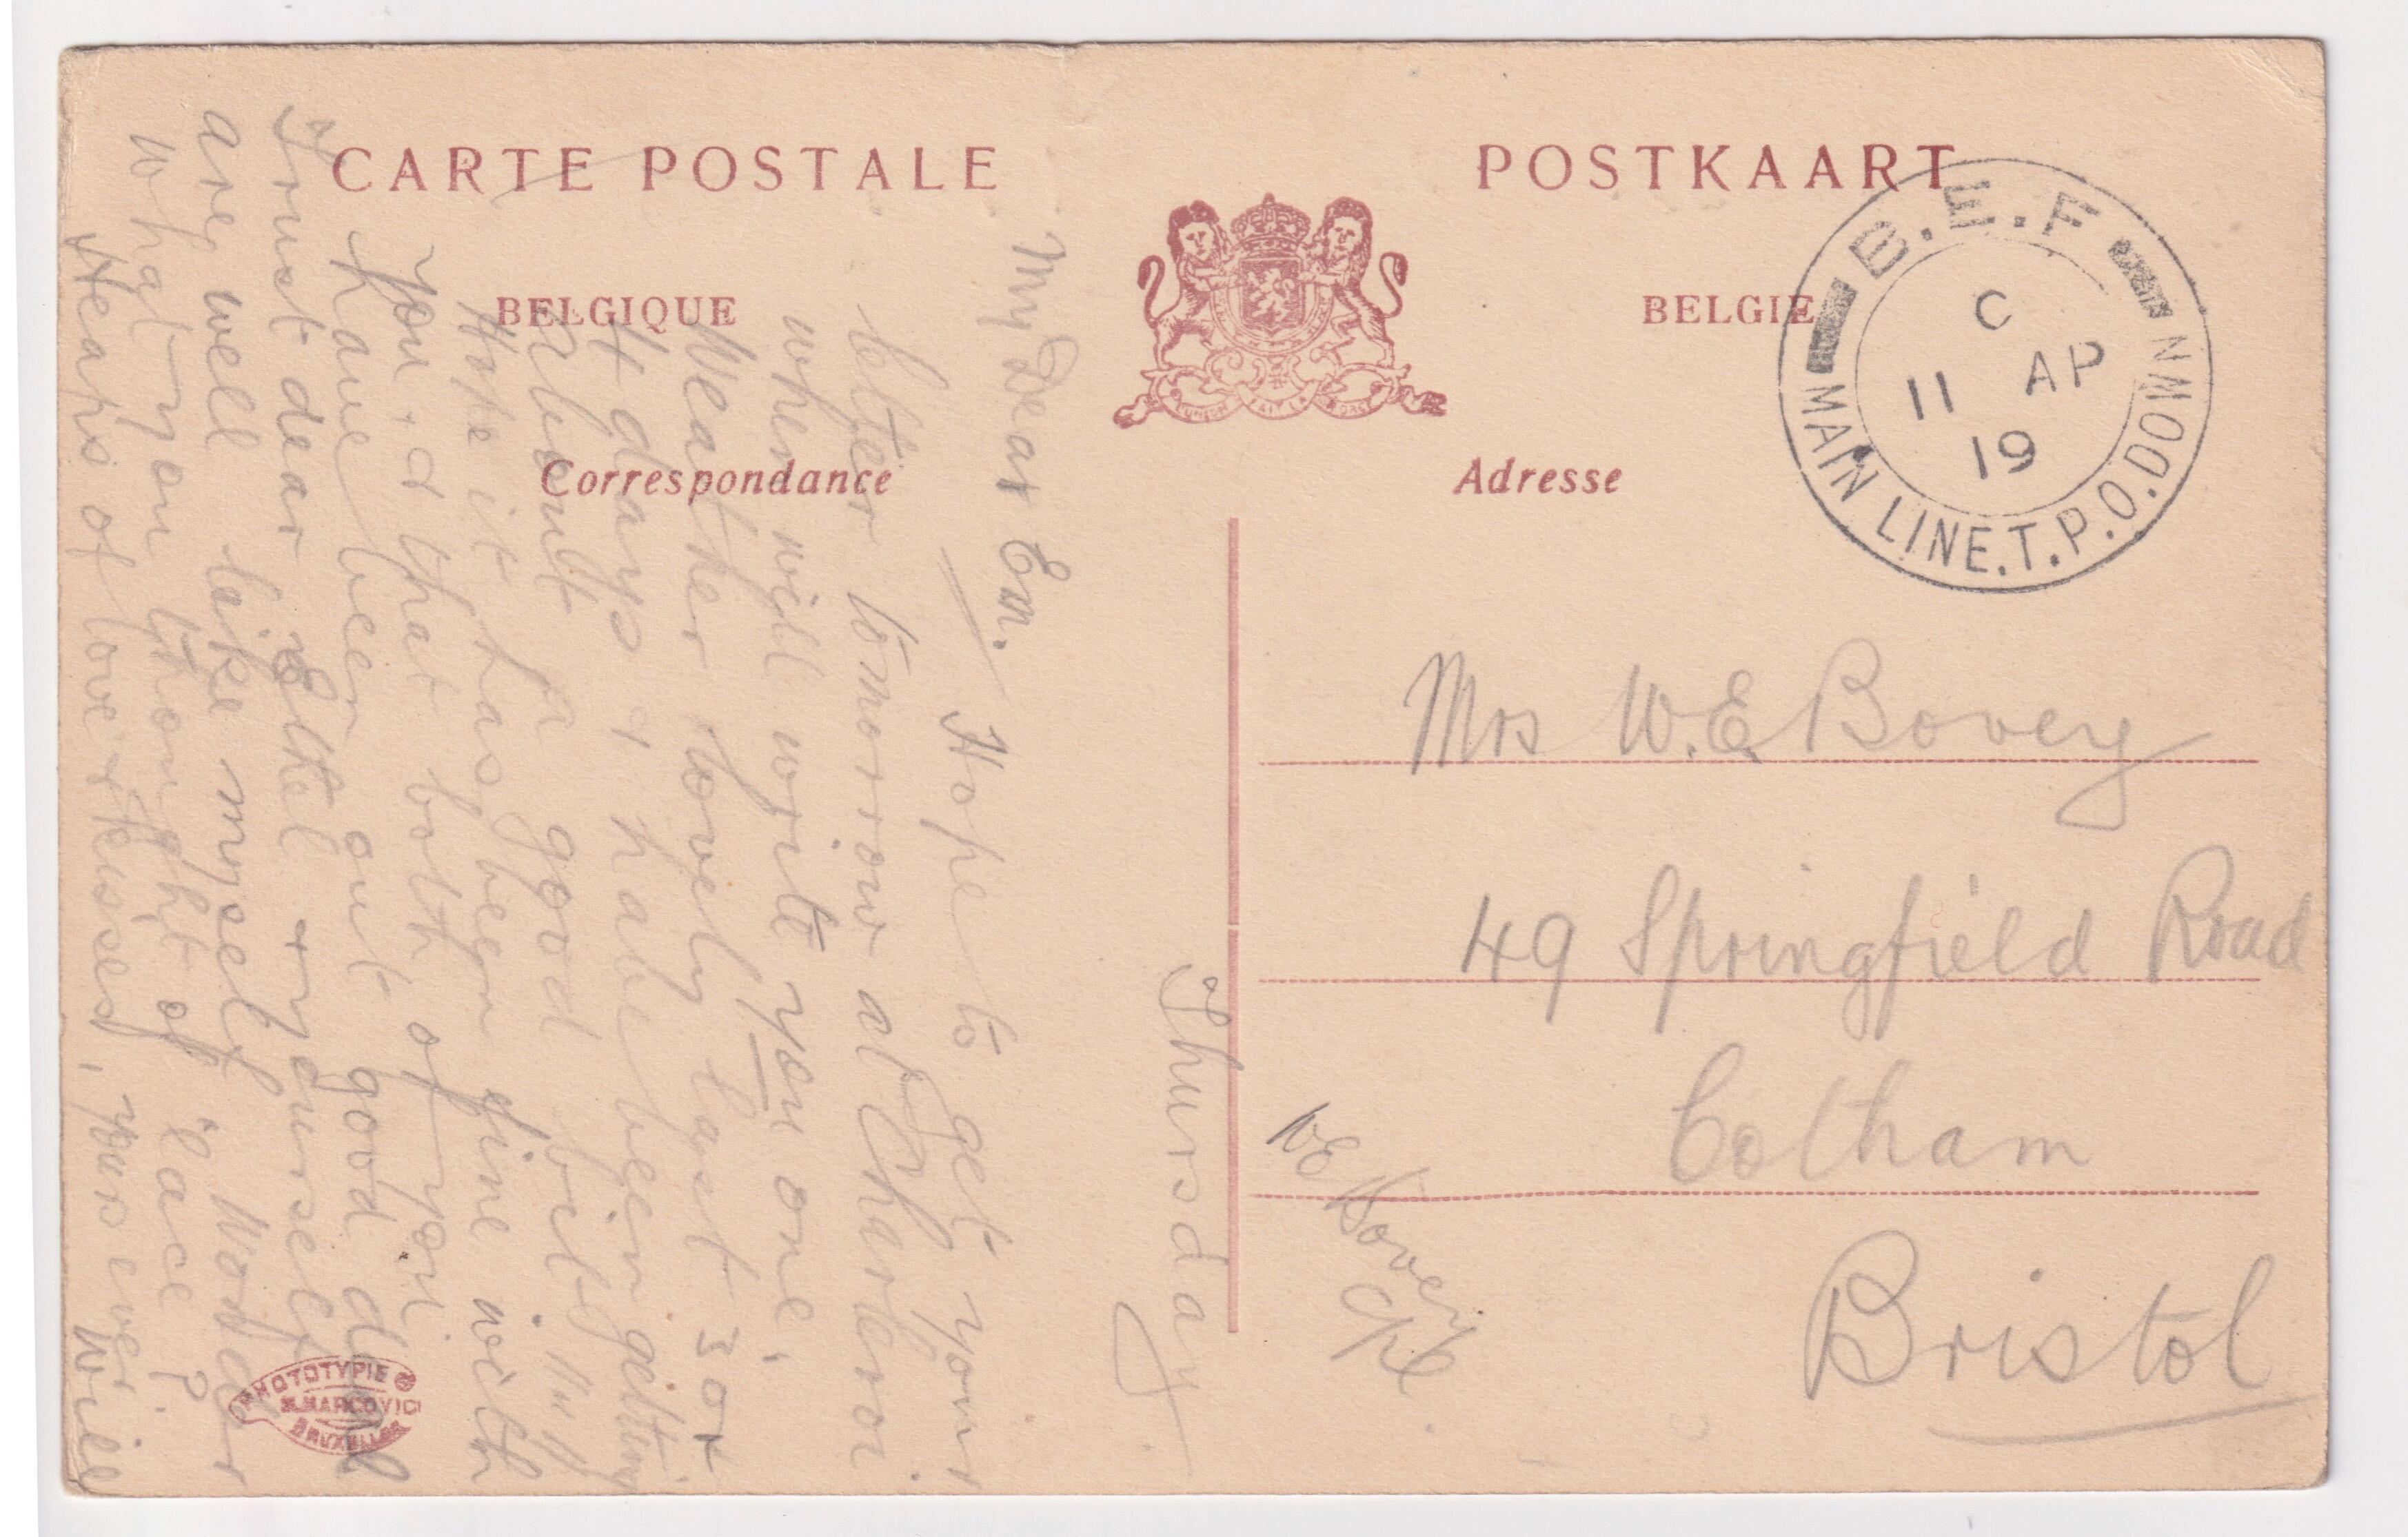 CARTE POSTALE
POSTKAART
BELGIQUE
BELGIE
L'UNION FAIT LA FORCE
Correspondance
Adresse
B.E.F
C
11 AP
19
MAIN LINE.T.P.O.DOWN
Thursday.
My Dear Em.
Hope to get your
letter tomorrow at Charleroi.
when will write you one,
Weather lovely last 3 or
4 days & have been getting
about a good bit.
Hope it has been fine with
you, & that both of you
have been out good deal
Trust dear Ethel & yourself
are well like myself Wonder
what you thought of lace?
Heaps of love & kisses, yours ever
Will
Mrs W.E. Bovey
49 Springfield Road
Cotham
Bristol
WE Bovey
Cpl.
PHOTOTYPIE
MARCOVICI
BRUXELLES